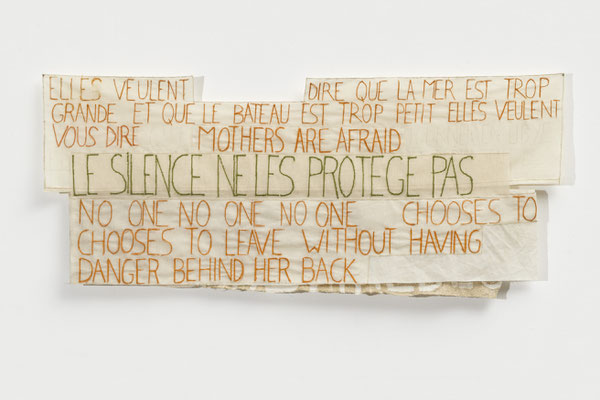 ELLES VEULENT DIRE QUE LA MER EST TROP
GRANDE ET QUE LE BATEAU EST TROP PETIT ELLES VEULENT
VOUS DIRE MOTHERS ARE AFRAID
LE SILENCE NE LES PROTEGE PAS
NO ONE NO ONE NO ONE CHOOSES TO
CHOOSES TO LEAVE WITHOUT HAVING
DANGER BEHIND HER BACK